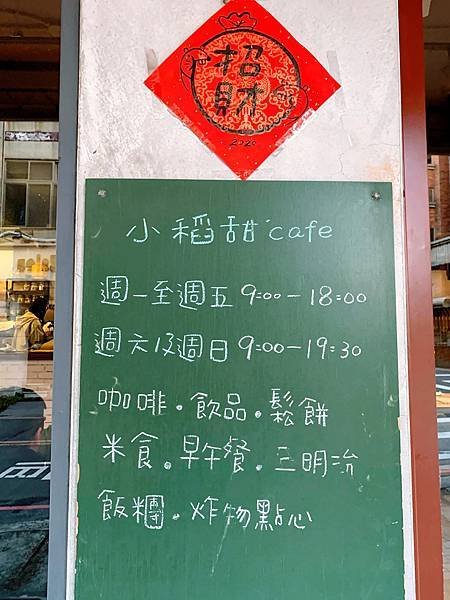 招財
2020
小稻甜 cafe
週一至週五 9:00-18:00
週六及週日 9:00-19:30
咖啡.飲品.鬆餅
米食.早午餐.三明治
飯糰.炸物點心